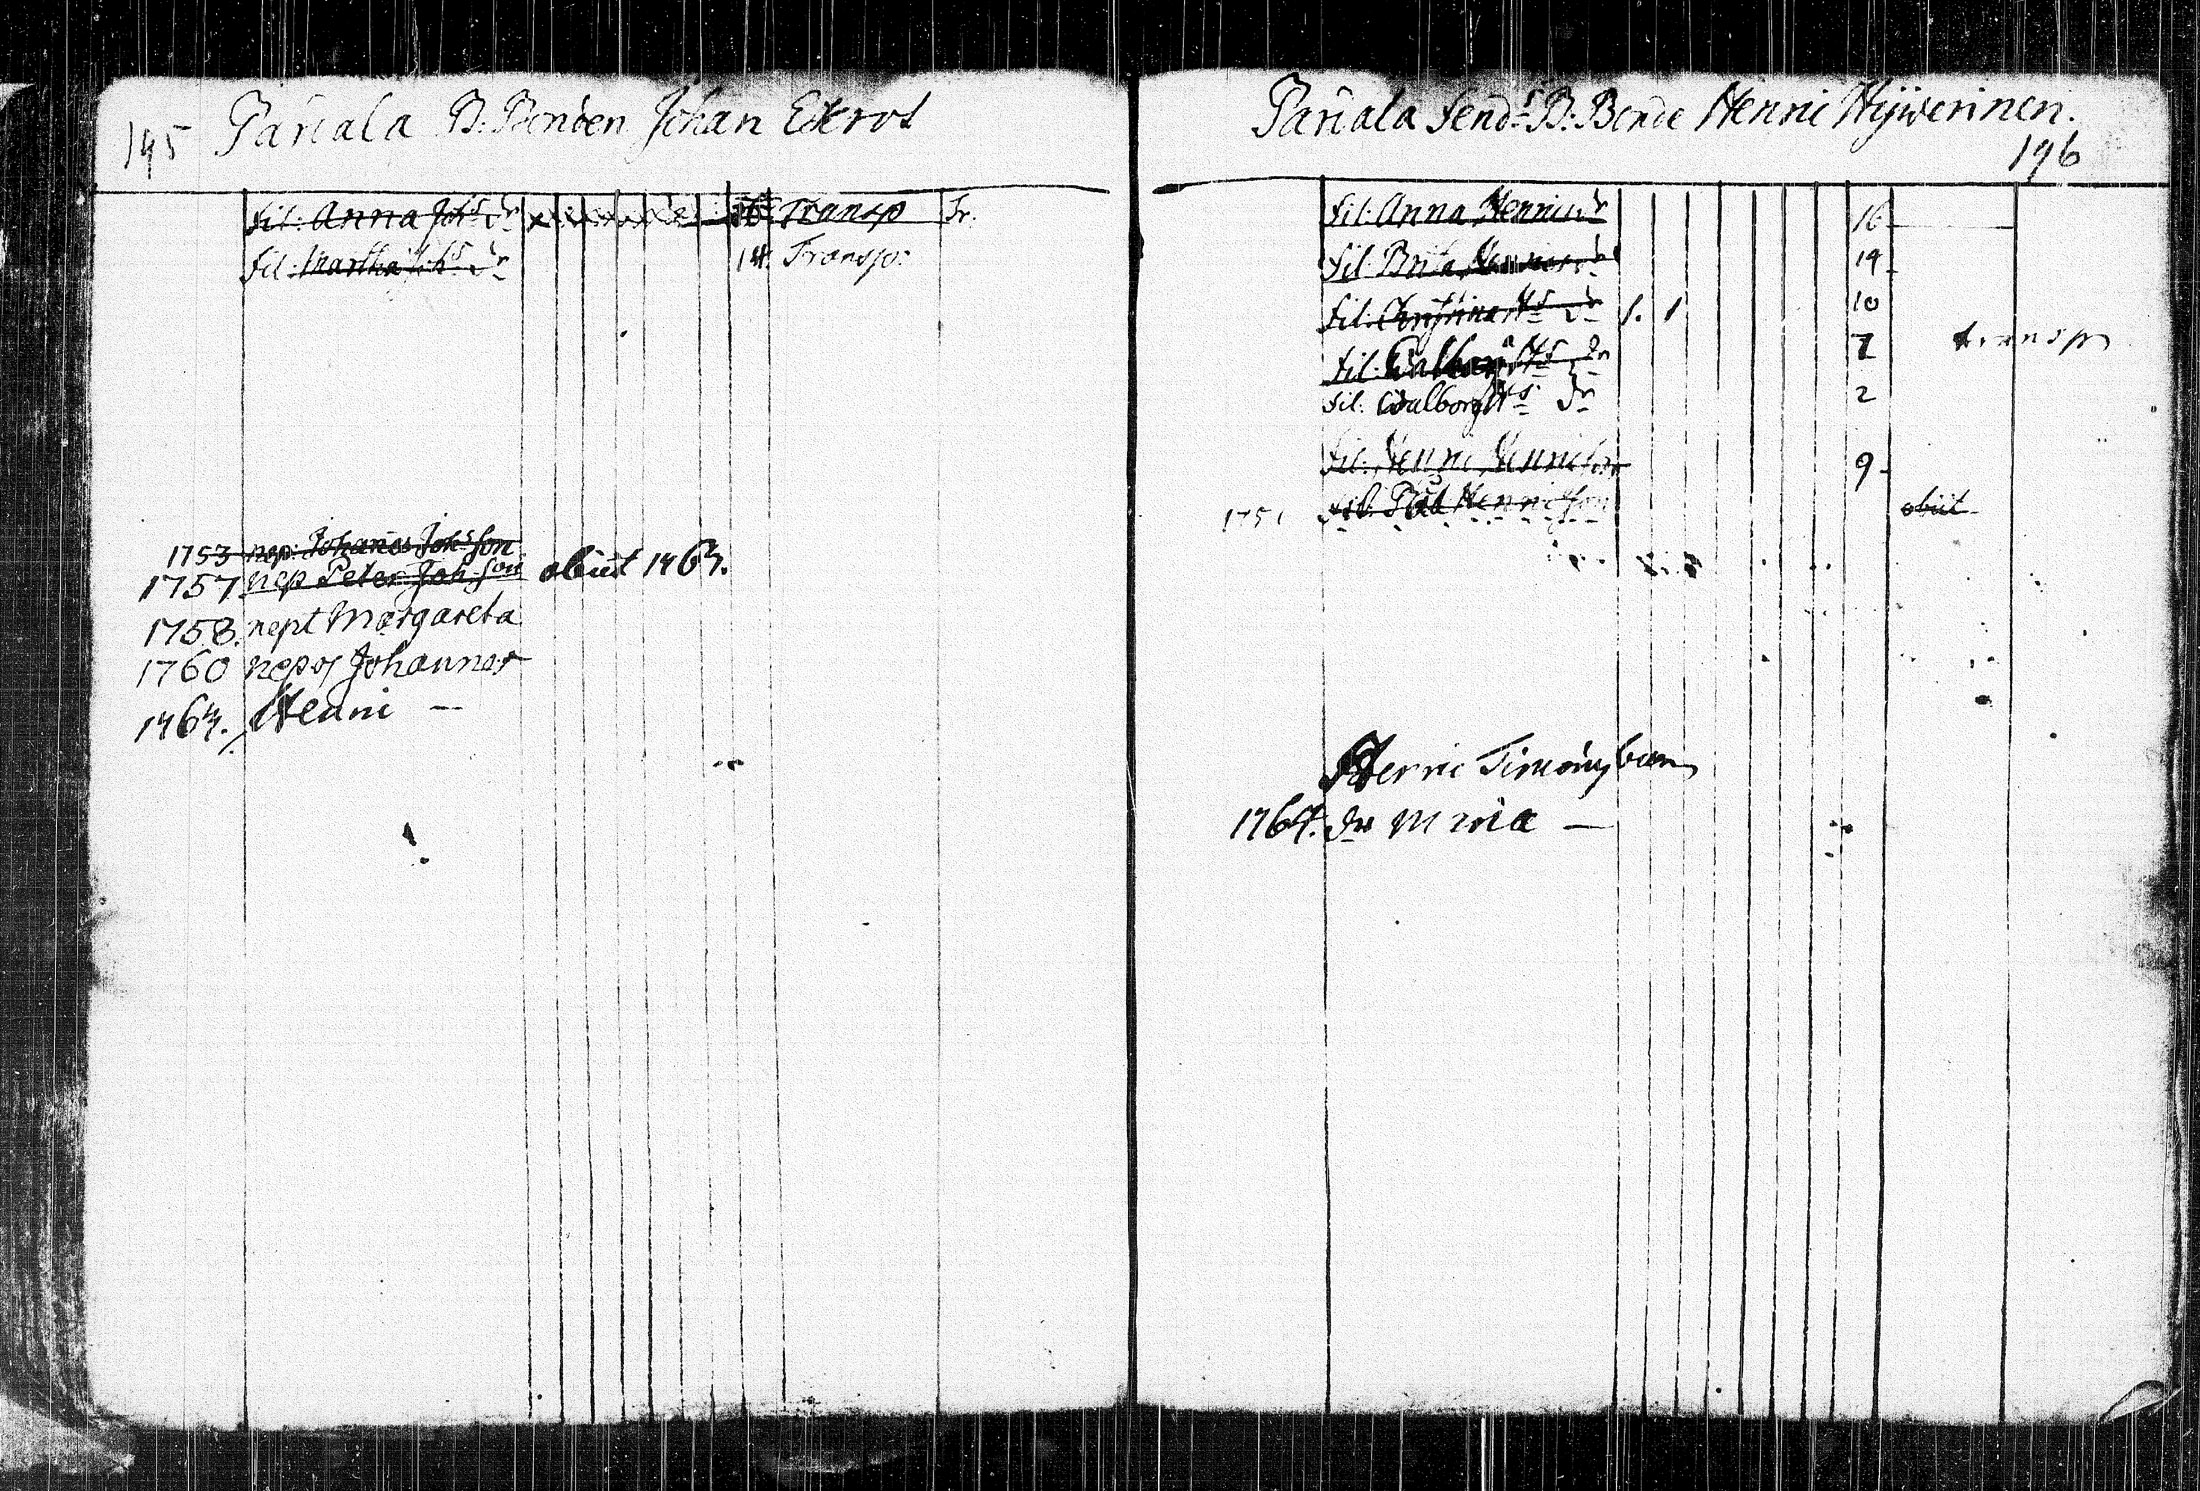 195 Pariala B. Bonden Johan Ekrot
fil: Anna Joh:s dr 16 Transp
fil: Martha Joh:s dr 14 Transp:
1753 nep: Johanes Joh:s son
1757 nep Peter Joh: son obiit 1763.
1758. nept Margareta
1760 nepos Johannes
1763. Henni —
Pariala Send:s B: Bonde Henni Hÿwerinen.
196
fil: Anna Hennis dr 16
fil: Brita dr 19
fil: Christina H:s dr 1. 1 10
fil: Walborg H:s dr 7 transp
fil: Walborg H:s dr 2
fil: Henni Hennicson 9
1751 fil: Pål Henricson obiit
Henric Simonss barn
1764. dr Maria —